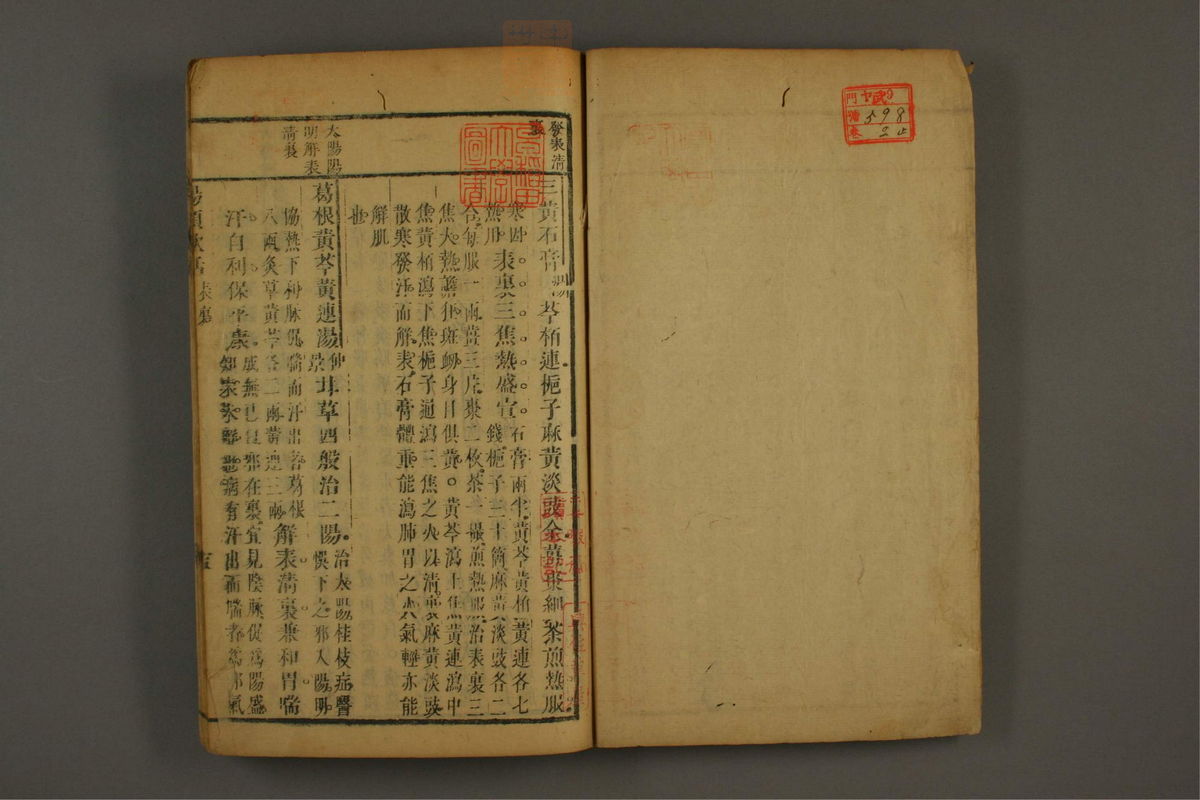 發表清
裏
三黃石膏湯 芩栢連梔子麻黃淡豉全薑棗細茶煎熱服
寒因 石膏兩半黃芩黃栢黃連各七
熱用 表裏三焦熱盛宣 錢梔子三十箇麻黃淡豉各二
合每服一兩薑三片棗二枚茶一撮煎熱服治表裏三
焦大熱譫狂斑衂身目俱黃。黃芩瀉上焦黃連瀉中
焦黃栢瀉下焦梔子通瀉三焦之火以清裏麻黃淡豉
散寒發汗而解表石膏體重能瀉肺胃之火氣輕亦能
解肌
也
太陽陽
明解表
清裏
葛根黃芩黃連湯 仲景 甘草四般治二陽 治太陽桂枝症醫
悞下之邪入陽明
協熱下利脉促喘而汗出者葛根
八兩炙草黃芩各二兩黃連三兩 解表清裏兼和胃喘
汗自利保平康 成無已曰邪在裏宜見陰脉促爲陽盛
知表未解也病有汗出而喘者爲邪氣
湯頭歌括 表裏
早稻田
大學
圖書
門
號 598
卷